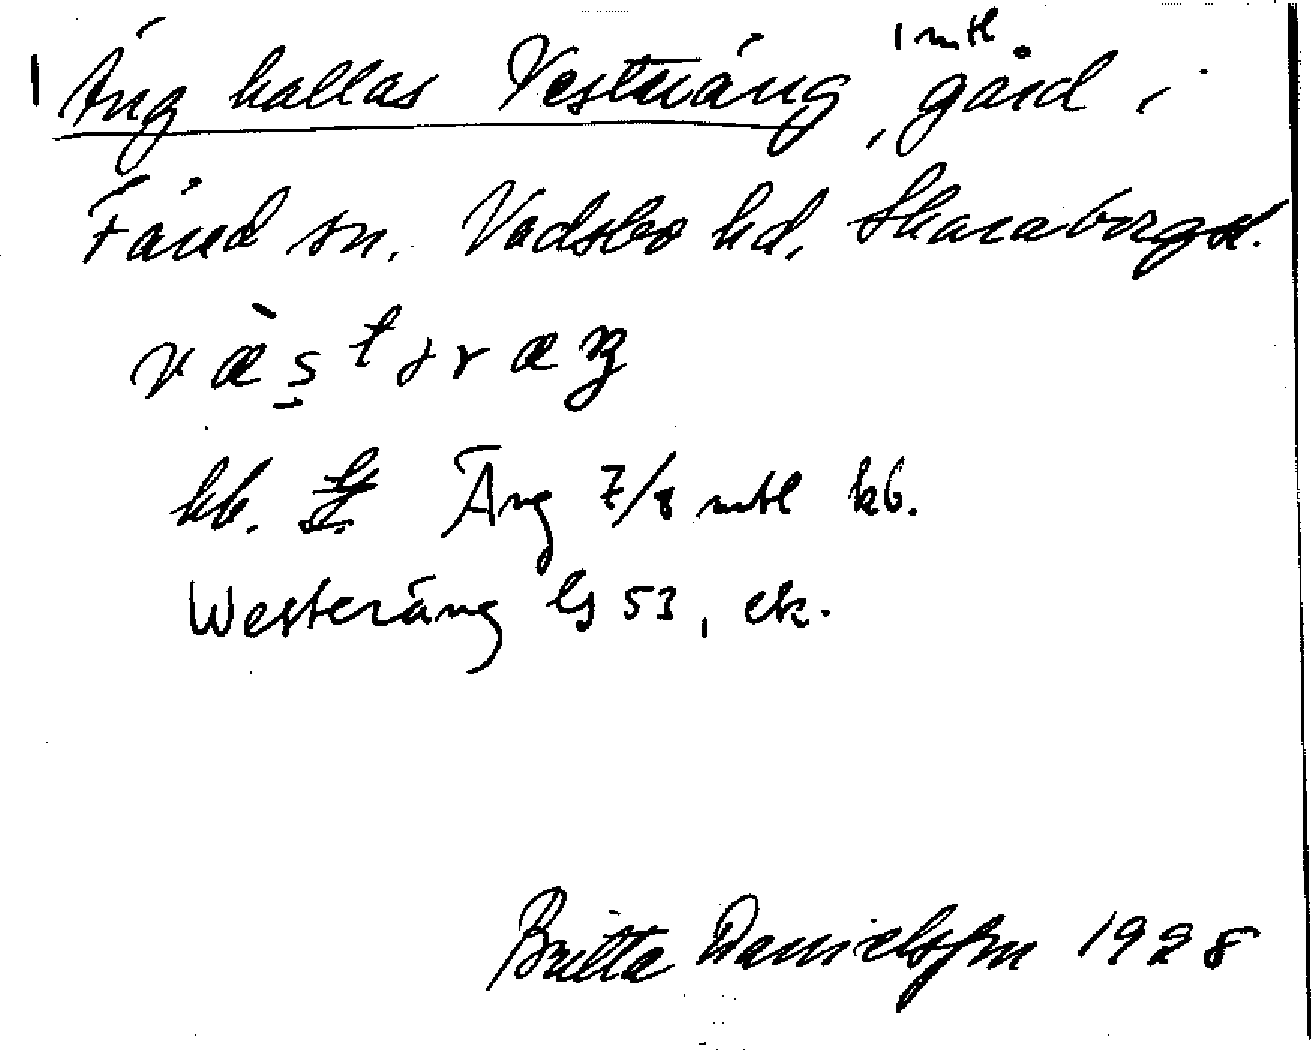 1 Äng kallas Vesteräng, 1 mtl gård i
Färed sn. Vadsbo hd. Skaraborgsl.
kb. Äng 7/8 mtl kb.
Westeräng Gs 53, ek.
Britta Danielsson 1928